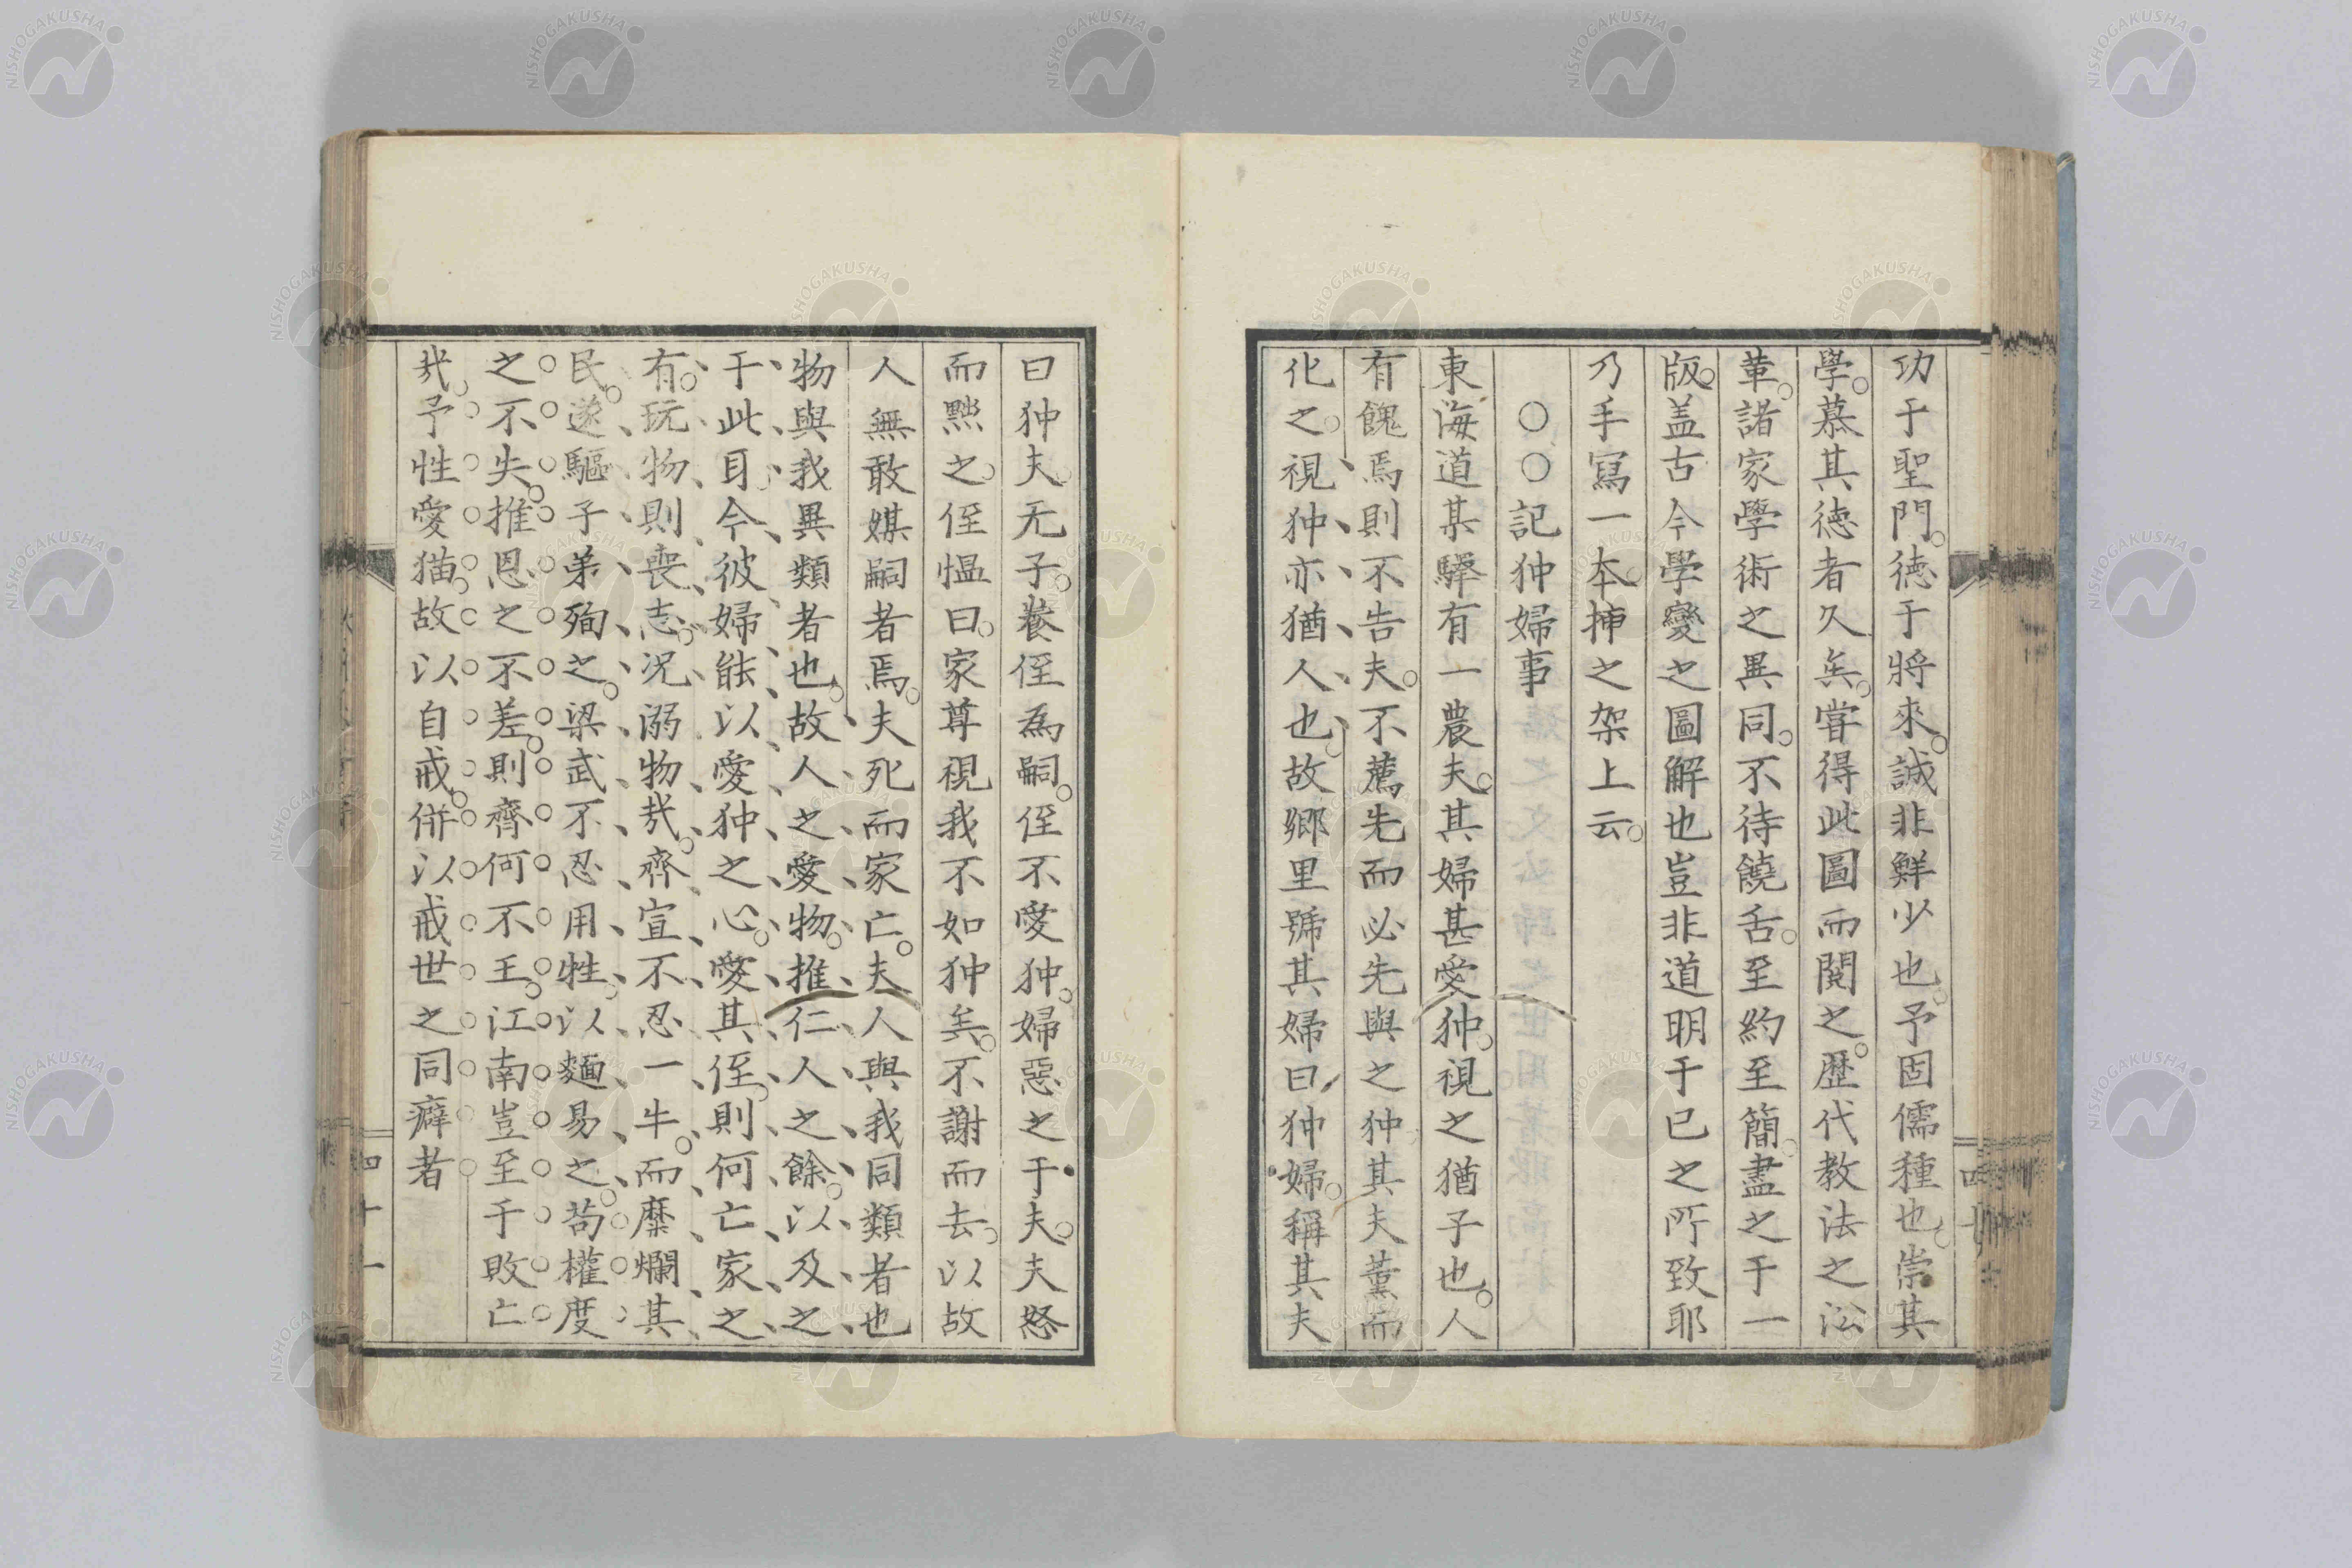 功于聖門。徳于將來。誠非鮮少也。予固儒種也。崇其
學。慕其徳者久矣。嘗得此圖而閱之。歴代教法之㳂
革。諸家學術之異同。不待饒舌。至約至簡。盡之于一
版。盖古今學變之圖解也豈非道明于已之所致耶
乃手寫一本。挿之架上云。
○○記狆婦事
東海道某驛有一農夫。其婦甚愛狆。視之猶子也。人
有餽焉則不告夫。不薦先而必先與之狆其夫薰而
化之。視狆亦猶人也。故鄉里號其婦曰狆婦。稱其夫
曰狆夫。无子。養侄為嗣。侄不愛狆。婦惡之于夫。夫怒
而黙之。侄愠曰。家尊視我不如狆矣。不謝而去。以故
人無敢媒嗣者焉。夫死而家亡。夫人與我同類者也
物與我異類者也。故人之愛物。推仁人之餘。以及之
于此耳。今彼婦能以愛狆之心。愛其侄。則何亡家之
有。玩物則喪志。况溺物㦲。齊宣不忍一牛。而糜爛其
民。遂驅子弟殉之。梁武不忍用牲。以麵易之。苟權度
之不失。推恩之不差。則齊何不王。江南豈至于敗亡
㦲。予性愛猫。故以自戒。併以戒世之同癖者
四十一
NISHOGAKUSHA